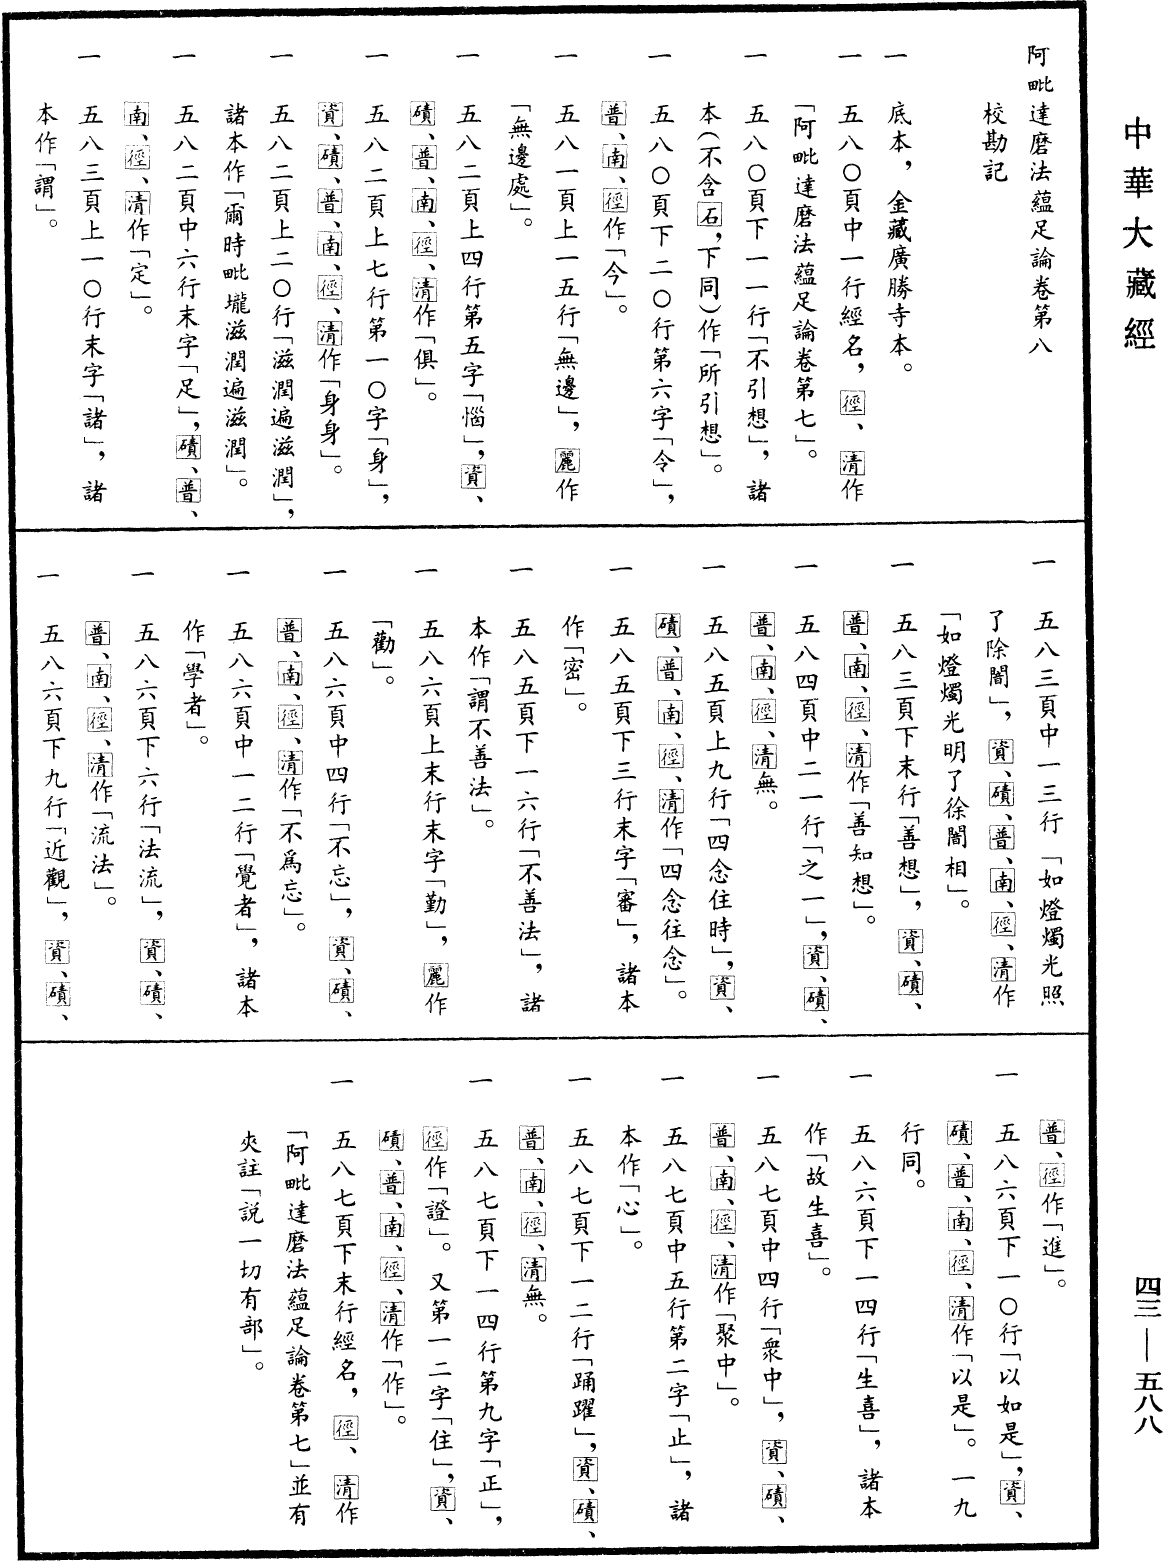 中華大藏經
阿毗達磨法蘊足論卷第八
校勘記
一 底本，金藏廣勝寺本。
一 五八〇頁中一行經名，徑、清作
「阿毗達磨法蘊足論卷第七」。
一 五八〇頁下一一行「不引想」，諸
本（不含石，下同）作「所引想」。
一 五八〇頁下二〇行第六字「令」，
普、南、徑作「今」。
一 五八一頁上一五行「無邊」，麗作
「無邊處」。
一 五八二頁上四行第五字「惱」，資、
磧、普、南、徑、清作「俱」。
一 五八二頁上七行第一〇字「身」，
資、磧、普、南、徑、清作「身身」。
一 五八二頁上二〇行「滋潤遍滋潤」，
諸本作「爾時毗壠滋潤遍滋潤」。
一 五八二頁中六行末字「足」，磧、普、
南、徑、清作「定」。
一 五八三頁上一〇行末字「諸」，諸
本作「謂」。
一 五八三頁中一三行「如燈燭光照
了除闇」，資、磧、普、南、徑、清作
「如燈燭光明了徐闇相」。
一 五八三頁下末行「善想」，資、磧、
普、南、徑、清作「善知想」。
一 五八四頁中二一行「之一」，資、磧、
普、南、徑、清無。
一 五八五頁上九行「四念住時」，資、
磧、普、南、徑、清作「四念往念」。
一 五八五頁下三行末字「審」，諸本
作「密」。
一 五八五頁下一六行「不善法」，諸
本作「謂不善法」。
一 五八六頁上末行末字「勤」，麗作
「勸」。
一 五八六頁中四行「不忘」，資、磧、
普、南、徑、清作「不爲忘」。
一 五八六頁中一二行「覺者」，諸本
作「學者」。
一 五八六頁下六行「法流」，資、磧、
普、南、徑、清作「流法」。
一 五八六頁下九行「近觀」，資、磧、
普、徑作「進」。
一 五八六頁下一〇行「以如是」，資、
磧、普、南、徑、清作「以是」。一九
行同。
一 五八六頁下一四行「生喜」，諸本
作「故生喜」。
一 五八七頁中四行「衆中」，資、磧、
普、南、徑、清作「聚中」。
一 五八七頁中五行第二字「止」，諸
本作「心」。
一 五八七頁下一二行「踊躍」，資、磧、
普、南、徑、清無。
一 五八七頁下一四行第九字「正」，
徑作「證」。又第一二字「住」，資、
磧、普、南、徑、清作「作」。
一 五八七頁下末行經名，徑、清作
「阿毗達磨法蘊足論卷第七」並有
夾註「說一切有部」。
四三——五八八